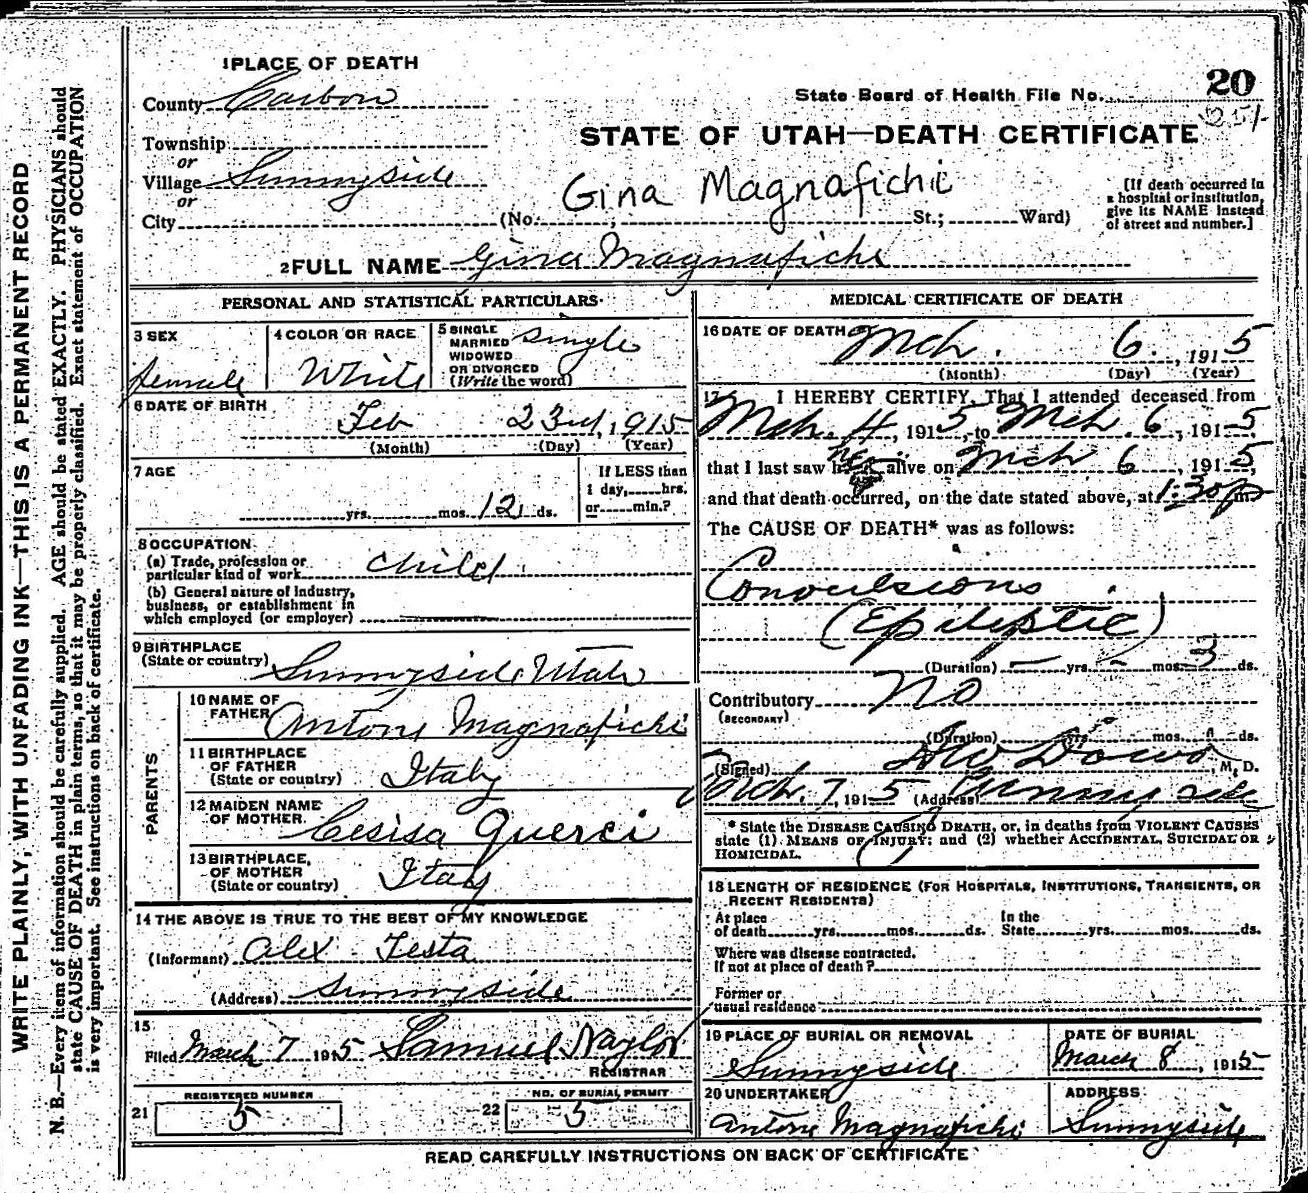 1 PLACE OF DEATH
County Carbon
State Board of Health File No. 20
Township
or
Village Sunnyside
or
City
STATE OF UTAH—DEATH CERTIFICATE
Gina Magnafichi
(No. St.; Ward)
[If death occurred in
a hospital or institution,
give its NAME instead
of street and number.]
2 FULL NAME Gina Magnafichi
PERSONAL AND STATISTICAL PARTICULARS
3 SEX
female
4 COLOR OR RACE
White
5 SINGLE
MARRIED
WIDOWED
OR DIVORCED
(Write the word)
single
6 DATE OF BIRTH
Feb 23rd, 1915
(Month) (Day) (Year)
7 AGE
yrs. mos. 12 ds.
If LESS than
1 day, hrs.
or min.?
8 OCCUPATION
(a) Trade, profession or
particular kind of work child
(b) General nature of industry,
business, or establishment in
which employed (or employer)
9 BIRTHPLACE
(State or country) Sunnyside Utah
PARENTS
10 NAME OF
FATHER Antony Magnafichi
11 BIRTHPLACE
OF FATHER
(State or country) Italy
12 MAIDEN NAME
OF MOTHER Cesisa Querci
13 BIRTHPLACE,
OF MOTHER
(State or country) Italy
14 THE ABOVE IS TRUE TO THE BEST OF MY KNOWLEDGE
(Informant) Alex Testa
(Address) Sunnyside
15
Filed March 7 1915 Samuel Naylor
REGISTRAR
21 REGISTERED NUMBER
5
22 NO. OF BURIAL PERMIT
5
MEDICAL CERTIFICATE OF DEATH
16 DATE OF DEATH
Mch. 6, 1915
(Month) (Day) (Year)
17 I HEREBY CERTIFY, That I attended deceased from
Mch. 4, 1915, to Mch. 6, 1915
that I last saw her alive on Mch 6, 1915,
and that death occurred, on the date stated above, at 1:30 p m.
The CAUSE OF DEATH* was as follows:
Convulsions
(Epileptic)
(Duration) — yrs. — mos. 3 ds.
Contributory No
(SECONDARY)
(Duration) yrs. mos. ds.
(Signed) Dowd, M. D.
Mch. 7, 1915 (Address) Sunnyside
* State the DISEASE CAUSING DEATH, or, in deaths from VIOLENT CAUSES
state (1) MEANS OF INJURY; and (2) whether ACCIDENTAL, SUICIDAL OR
HOMICIDAL.
18 LENGTH OF RESIDENCE (FOR HOSPITALS, INSTITUTIONS, TRANSIENTS, OR
RECENT RESIDENTS)
At place
of death yrs. mos. ds.
In the
State yrs. mos. ds.
Where was disease contracted,
If not at place of death?
Former or
usual residence
19 PLACE OF BURIAL OR REMOVAL
Sunnyside
DATE OF BURIAL
March 8, 1915
20 UNDERTAKER
Antone Magnafichi
ADDRESS
Sunnyside
READ CAREFULLY INSTRUCTIONS ON BACK OF CERTIFICATE
WRITE PLAINLY, WITH UNFADING INK—THIS IS A PERMANENT RECORD
N. B.—Every item of information should be carefully supplied. AGE should be stated EXACTLY. PHYSICIANS should
state CAUSE OF DEATH in plain terms, so that it may be properly classified. Exact statement of OCCUPATION
is very important. See instructions on back of certificate.